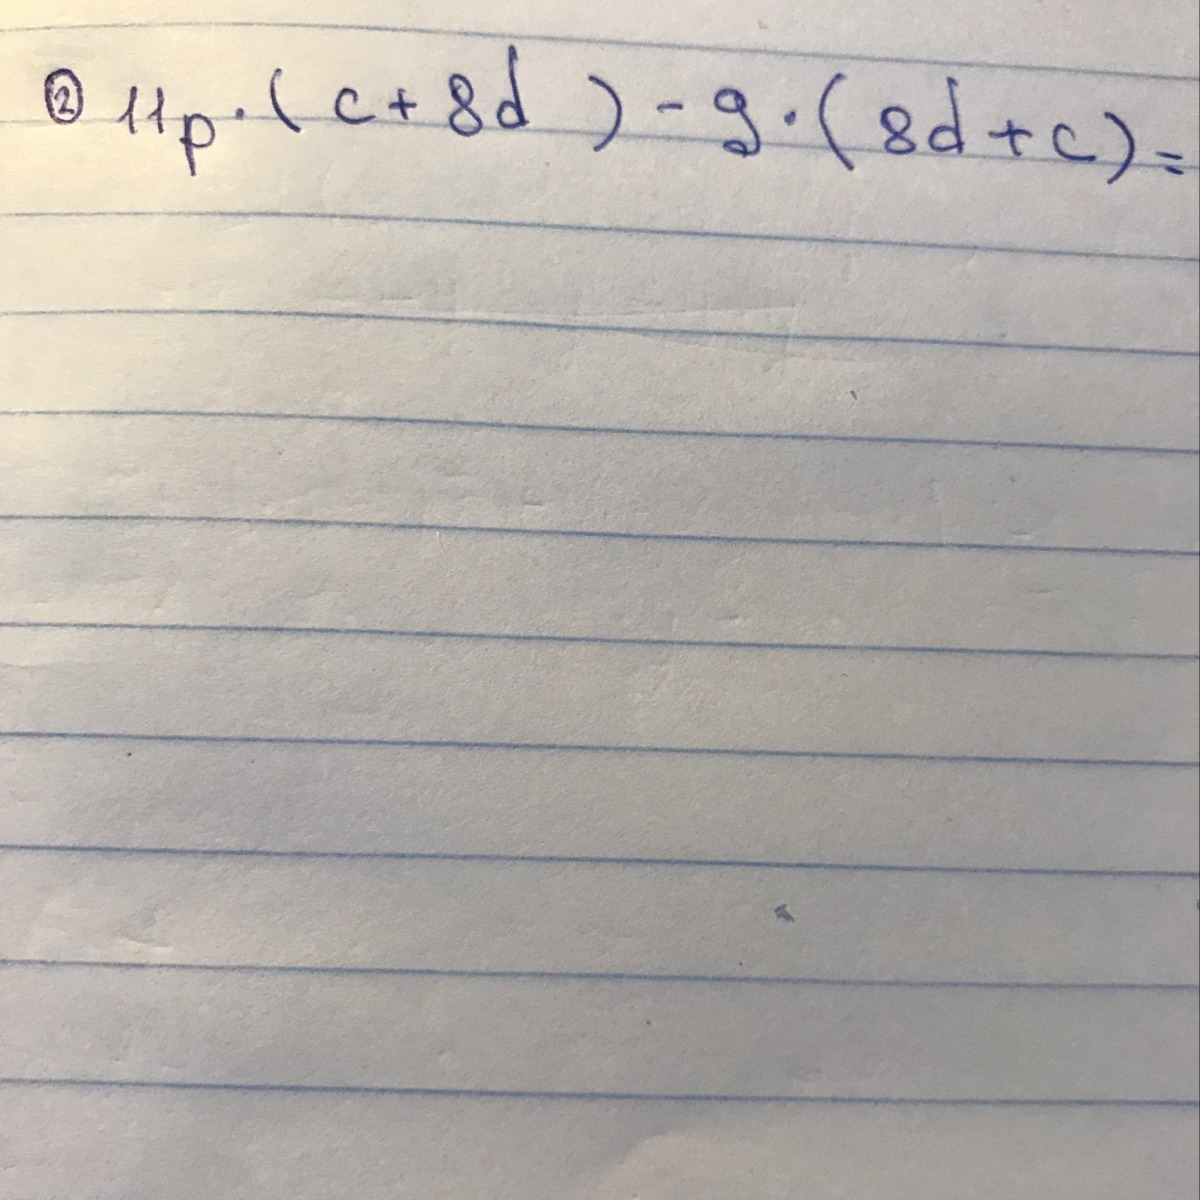 ② 11p·(c+8d)-9·(8d+c)=